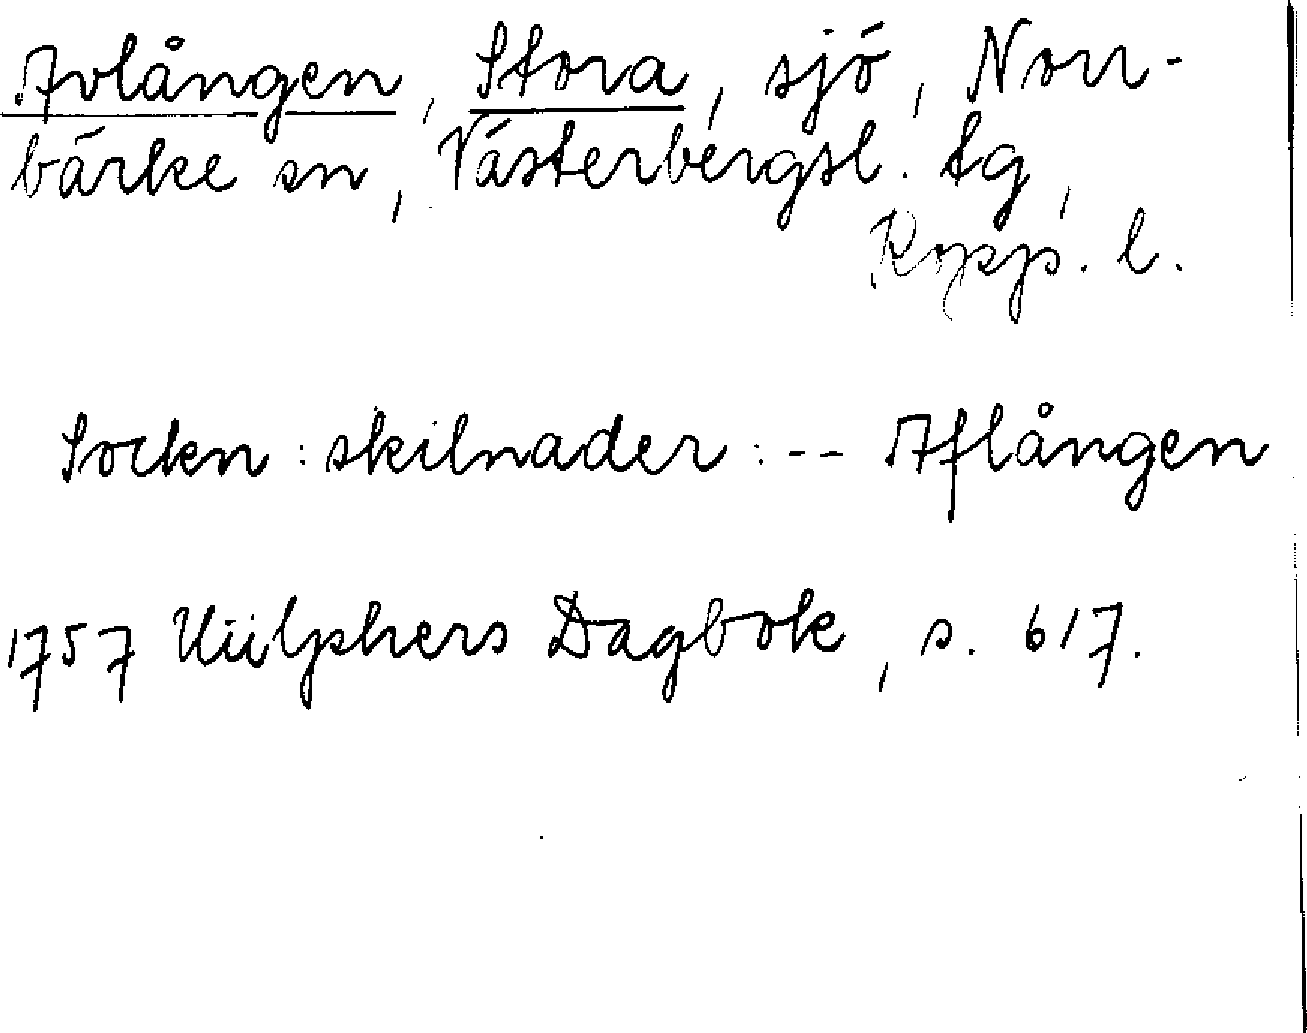 Avlången, Stora, sjö, Norr-
bärke sn, Västerbergsl. tg,
Kopp. l.
Socken: skilnader: -- Aflången
1757 Hülphers Dagbok, s. 617.